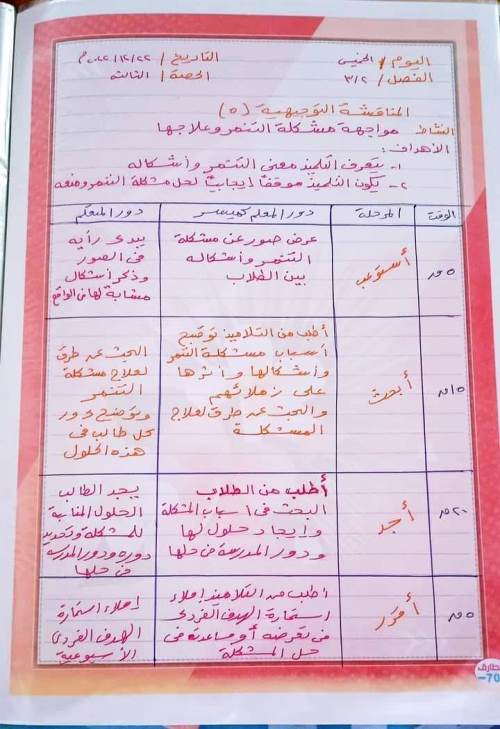 اليوم / الخميس
التاريخ / ٢٢/١٢/٢٠٢٢م
الفصل / ٣/٢
الحصة / الثالثة
المناقشة التوجيهية (٥)
النشاط مواجهة مشكلة التنمر وعلاجها
الأهداف:
١- يتعرف التلميذ معنى التنمر وأشكاله
٢- يكون التلميذ موقفاً إيجابياً لحل مشكلة التنمر ومنعه
الوقت
المرحلة
دور المعلم كميسر
دور المتعلم
٥ق
أستوعب
عرض صور عن مشكلة
التنمر وأشكاله
بين الطلاب
يبدى رأيه
فى الصور
وذكر أشكال
مشابة لها فى الواقع
١٥ق
أبحث
أطلب من التلاميذ توضيح
أسباب مشكلة التنمر
وأشكالها وأثرها
على زملائهم
والبحث عن طرق لعلاج
المشكلة
البحث عن طرق
لعلاج مشكلة
التنمر
ويوضح دور
كل طالب فى
هذه الحلول
٢٠ق
أجد
أطلب من الطلاب
البحث فى أسباب المشكلة
وإيجاد حلول لها
ودور المدرسة فى حلها
يجد الطالب
الحلول المناسبة
للمشكلة وتحديد
دوره ودور المدرسة
فى حلها
٥ق
أقرر
أطلب من التلاميذ إملاء
استمارة الهدف الفردى
فى تعرضه أو مساعدته فى
حل المشكلة
إملاء استمارة
الهدف الفردى
الأسبوعية
-70